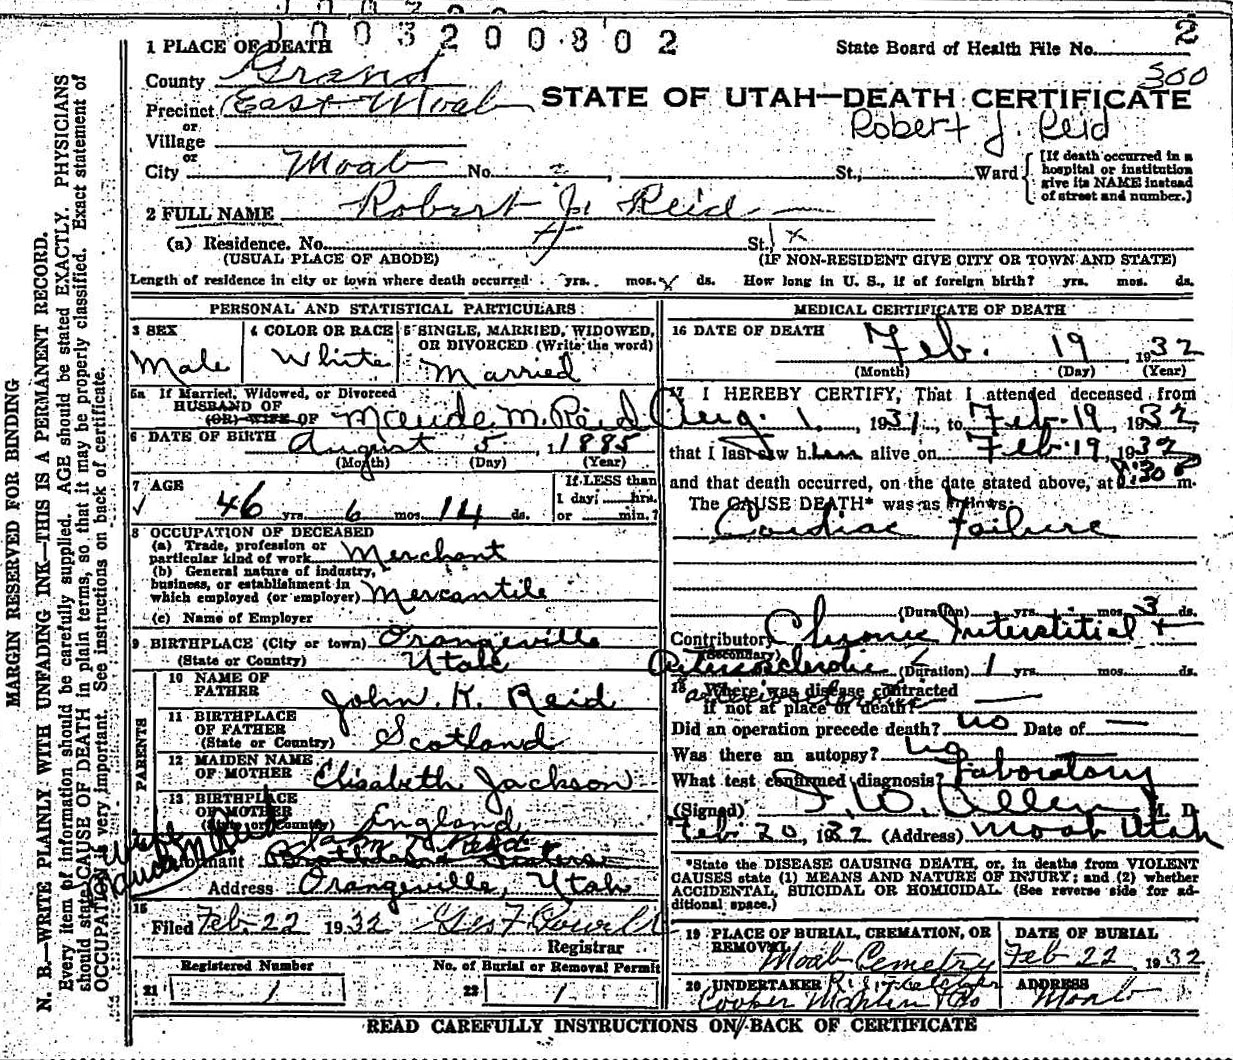 1003200802
1 PLACE OF DEATH
State Board of Health File No. 2
300
County Grand
Precinct East Moab
STATE OF UTAH—DEATH CERTIFICATE
Robert J. Reid
or
Village
or
City Moab No. St., Ward
[If death occurred in a hospital or institution give its NAME instead of street and number.]
2 FULL NAME Robert J. Reid
(a) Residence. No. St.
(USUAL PLACE OF ABODE) (IF NON-RESIDENT GIVE CITY OR TOWN AND STATE)
Length of residence in city or town where death occurred yrs. mos. ds. How long in U. S., if of foreign birth? yrs. mos. ds.
PERSONAL AND STATISTICAL PARTICULARS
3 SEX Male
4 COLOR OR RACE White
5 SINGLE, MARRIED, WIDOWED, OR DIVORCED (Write the word) Married
5a If Married, Widowed, or Divorced
HUSBAND OF
(OR) WIFE OF Maude M. Reid
6 DATE OF BIRTH August 5, 1885
(Month) (Day) (Year)
7 AGE 46 yrs. 6 mos. 14 ds.
If LESS than 1 day, hrs. or min.?
8 OCCUPATION OF DECEASED
(a) Trade, profession or particular kind of work Merchant
(b) General nature of industry, business, or establishment in which employed (or employer) Mercantile
(c) Name of Employer
9 BIRTHPLACE (City or town) Orangeville
(State or Country) Utah
PARENTS
10 NAME OF FATHER John K. Reid
11 BIRTHPLACE OF FATHER (State or Country) Scotland
12 MAIDEN NAME OF MOTHER Elisabeth Jackson
13 BIRTHPLACE OF MOTHER (State or Country) England
Informant
Address Orangeville, Utah
15 Filed Feb. 22 1932
Registrar
Registered Number No. of Burial or Removal Permit
21 1 22 1
MEDICAL CERTIFICATE OF DEATH
16 DATE OF DEATH Feb. 19 1932
(Month) (Day) (Year)
17 I HEREBY CERTIFY, That I attended deceased from
Aug. 1, 1931, to Feb. 19, 1932,
that I last saw him alive on Feb. 19, 1932
and that death occurred, on the date stated above, at 8:30 P m.
The CAUSE DEATH* was as follows:
Cardiac Failure
(Duration) yrs. mos. 3 ds.
Contributory Chronic Interstitial +
(Secondary)
(Duration) 1 yrs. mos. ds.
18 Where was disease contracted
if not at place of death? —
Did an operation precede death? no Date of —
Was there an autopsy? no
What test confirmed diagnosis? Laboratory
(Signed) F. W. Allen M. D.
Feb 20, 1932 (Address) Moab Utah
*State the DISEASE CAUSING DEATH, or, in deaths from VIOLENT CAUSES state (1) MEANS AND NATURE OF INJURY; and (2) whether ACCIDENTAL, SUICIDAL OR HOMICIDAL. (See reverse side for additional space.)
19 PLACE OF BURIAL, CREMATION, OR REMOVAL Moab Cemetry
DATE OF BURIAL Feb 22, 1932
20 UNDERTAKER
ADDRESS Moab
READ CAREFULLY INSTRUCTIONS ON BACK OF CERTIFICATE
MARGIN RESERVED FOR BINDING
N. B.—WRITE PLAINLY WITH UNFADING INK—THIS IS A PERMANENT RECORD.
Every item of information should be carefully supplied. AGE should be stated EXACTLY. PHYSICIANS
should state CAUSE OF DEATH in plain terms, so that it may be properly classified. Exact statement of
OCCUPATION is very important. See instructions on back of certificate.